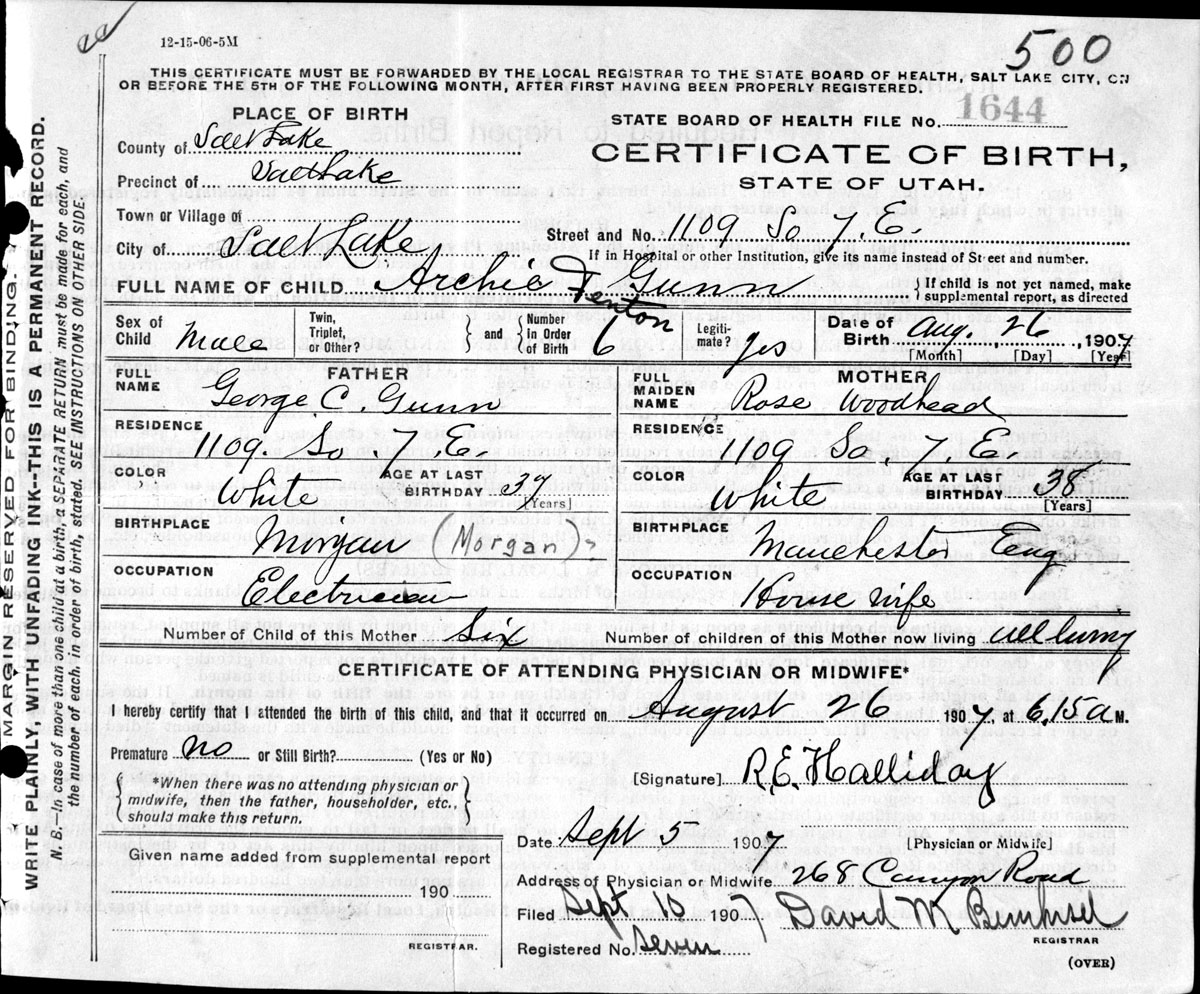 12-15-06-5M
500
THIS CERTIFICATE MUST BE FORWARDED BY THE LOCAL REGISTRAR TO THE STATE BOARD OF HEALTH, SALT LAKE CITY, ON
OR BEFORE THE 5TH OF THE FOLLOWING MONTH, AFTER FIRST HAVING BEEN PROPERLY REGISTERED.
PLACE OF BIRTH
County of Salt Lake
Precinct of Salt Lake
Town or Village of
City of Salt Lake
STATE BOARD OF HEALTH FILE NO. 1644
CERTIFICATE OF BIRTH,
STATE OF UTAH.
Street and No. 1109 So 7. E.
If in Hospital or other Institution, give its name instead of Street and number.
FULL NAME OF CHILD Archie F Gunn
Fenton
If child is not yet named, make
supplemental report, as directed
Sex of Child Male
Twin, Triplet, or Other?
and
Number in Order of Birth 6
Legiti-mate? yes
Date of Birth Aug. 26, 1907
[Month] [Day] [Year]
FATHER
NAME George C. Gunn
RESIDENCE 1109. So. 7. E.
COLOR White
AGE AT LAST BIRTHDAY 37
[Years]
BIRTHPLACE Morgan (Morgan)
OCCUPATION Electrician
MOTHER
FULL MAIDEN NAME Rose Woodhead
RESIDENCE 1109 So. 7. E
COLOR White
AGE AT LAST BIRTHDAY 38
[Years]
BIRTHPLACE Manchester Eng
OCCUPATION House wife
Number of Child of this Mother Six
Number of children of this Mother now living all living
CERTIFICATE OF ATTENDING PHYSICIAN OR MIDWIFE*
I hereby certify that I attended the birth of this child, and that it occurred on August 26 1907, at 6.15 a M.
Premature no or Still Birth? (Yes or No)
*When there was no attending physician or
midwife, then the father, householder, etc.,
should make this return.
[Signature] R.E. Halliday
Date Sept 5 1907
[Physician or Midwife]
Given name added from supplemental report
190
REGISTRAR.
Address of Physician or Midwife 268 Canyon Road
Filed Sept 10 1907 David M
REGISTRAR
Registered No. Seven
(OVER)
MARGIN RESERVED FOR BINDING.
WRITE PLAINLY, WITH UNFADING INK--THIS IS A PERMANENT RECORD.
N. B.--In case of more than one child at a birth, a SEPARATE RETURN must be made for each, and
the number of each, in order of birth, stated. SEE INSTRUCTIONS ON OTHER SIDE.